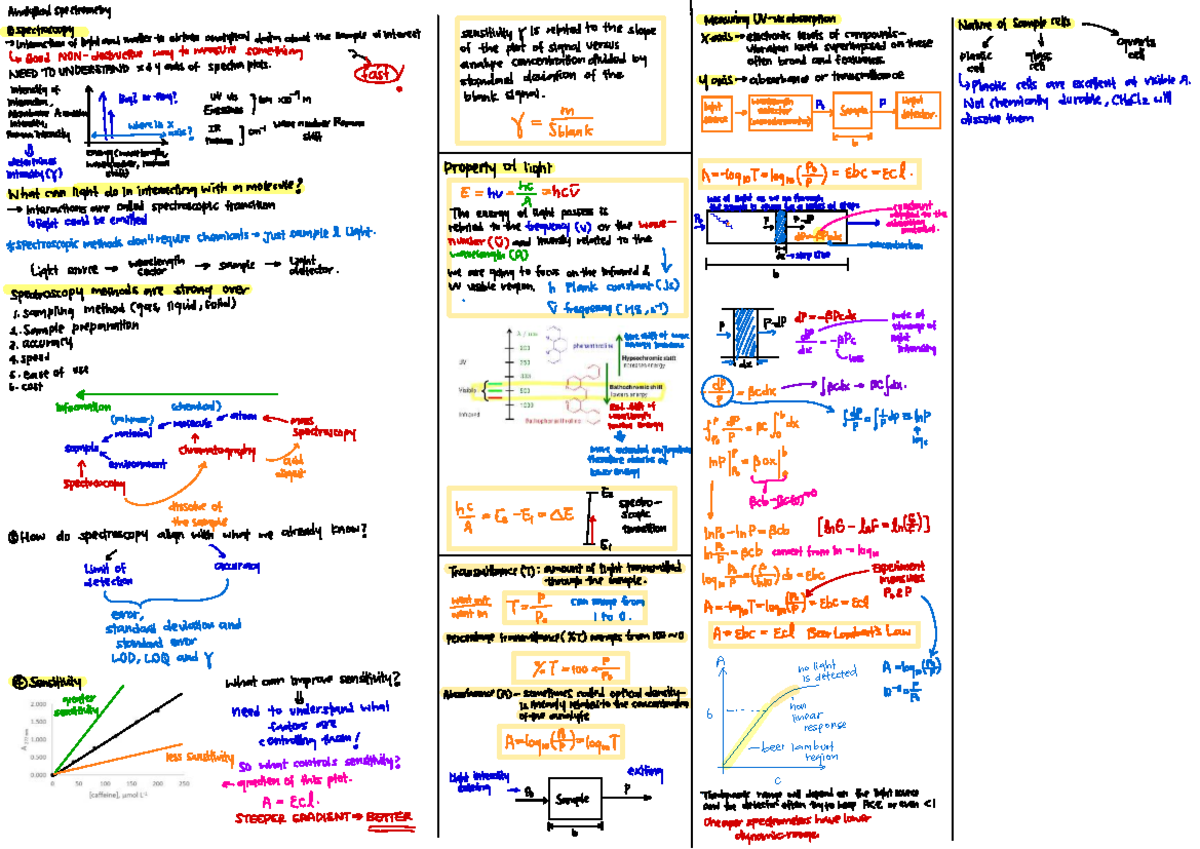 Analytical spectrometry
① spectroscopy
→ Interaction of light and matter to obtain analytical data about the sample of interest
↳ Good NON-destructive way to measure something
NEED TO UNDERSTAND x & y axis of spectra plots.
fast!
Intensity of
Intensity,
Raman Intensity
where in x
axis?
UV vis
Emission
IR
Raman
cm⁻¹
wave number Raman
shift
energy (wavelength,
wavenumber, raman
shift)
determines
intensity (γ)
What can light do in interacting with a molecule?
→ Interactions are called spectroscopic transition
↳ light could be emitted
*spectroscopic methods don't require chemicals → just sample & light.
Light source → wavelength
selector → sample → light
detector.
Spectroscopy methods are strong over
1. sampling method (gas, liquid, solid)
2. sample preparation
3. accuracy
4. speed
5. ease of use
6. cost
information
(chemical)
atom
(polymer)
molecule
material
mass
spectroscopy
sample
chromatography
environment
acid
digest
spectroscopy
dissolve of
the sample
③ How do spectroscopy align with what we already know?
Limit of
detection
accuracy
error,
standard deviation and
standard error
LOD, LOQ and γ
④ Sensitivity
greater
sensitivity
2.000
1.500
1.000
0.500
0.000
less sensitivity
0 50 100 150 200 250
[caffeine], μmol L⁻¹
What can improve sensitivity?
need to understand what
factors are
controlling them!
So what controls sensitivity?
← gradient of this plot.
A = Ecl.
STEEPER GRADIENT → BETTER
sensitivity γ is related to the slope
of the plot of signal versus
analyte concentration divided by
standard deviation of the
blank signal.
γ = m / Sblank
Property of light
E = hν = hc/λ = hcν̄
The energy of light possess is
related to the frequency (ν) or the wave-
number (ν̄) and inversly related to the
wavelength (λ)
we are going to focus on the infrared &
UV visible region.
h Plank constant (Js)
ν̄ frequency (Hz, s⁻¹)
λ / nm
UV
200
Visible
500
1000
Infrared
phenanthroline
Hypsochromic shift
increases energy
Bathochromic shift
lowers energy
Red shift of
wavelength
lowers energy
more extended conjugation
therefore absorbs at
lower energy
hc/λ = E₂ - E₁ = ΔE
E₂
E₁
spectro-
scopic
transition
Transmittance (T): amount of light transmitted
through the sample.
went out
went in
T = P/P₀
can range from
1 to 0.
Percentage transmittance (%T) ranges from 100 ~ 0
%T = 100 × P/P₀
Absorbance (A) - sometimes called optical density
is linearly related to the concentration
of the analyte
A = log₁₀(P₀/P) = log₁₀T
Light intensity
entering
P₀
Sample
P
exiting
b
Measuring UV-vis absorption
X axis → electronic levels of compounds-
vibration levels superimposed on these
often broad and features.
y axis → absorbance or transmittance
Light
source
wavelength
selector
(monochromator)
P₀
Sample
P
Light
detector.
b
A = -log₁₀T = log₁₀(P₀/P) = Ebc = Ecl.
P₀
P
P-dP
dP=-βPcdx
dx → step size
concentration
b
P
P-dP
dx
dP = -βPcdx
dP/dx = -βPc
loss
rate of
change of
light
intensity
-dP/P = βcdx
∫βcdx → βc∫dx.
∫dP/P = ∫1/P dP = lnP
lnP₀ - lnP = βcb
[lnE - lnF = ln(E/F)]
ln P₀/P = βcb convert from ln → log₁₀
Experiment
measures
P₀ & P
A = -log₁₀T = log₁₀(P₀/P) = Ebc = Ecl
A = Ebc = Ecl Beer Lambert's Law
A
6
no light
is detected
non
linear
response
beer lambert
region
C
A = log₁₀(P₀/P)
10⁻ᴬ = P/P₀
The dynamic range will depend on the light source
and the detector often try to keep A<2 or even <1
Cheaper spectrometers have lower
dynamic range.
Nature of sample cells
plastic
cell
glass
cell
quartz
cell
↳ Plastic cells are excellent at visible λ.
Not chemically durable, CH₂Cl₂ will
dissolve them